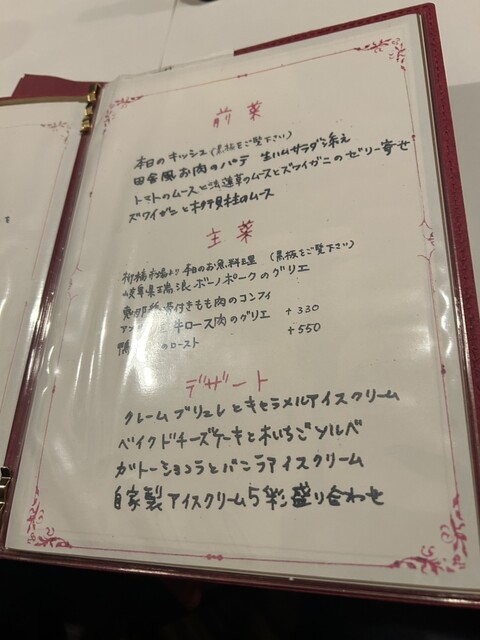 前菜
本日のキッシュ(黒板をご覧下さい)
田舎風お肉のパテ 生ハムサラダ添え
トマトのムースと法蓮草のムースとズワイガニのゼリー寄せ
ズワイガニと帆立貝柱のムース
主菜
柳橋市場より 本日のお魚料理 (黒板をご覧下さい)
岐阜県瑞浪ボーノポークのグリエ
骨付きもも肉のコンフィ
牛ロース肉のグリエ +330
鴨 のロースト +550
デザート
クレームブリュレとキャラメルアイスクリーム
ベイクドチーズケーキと木いちごソルベ
ガトーショコラとバニラアイスクリーム
自家製アイスクリーム5彩盛り合わせ